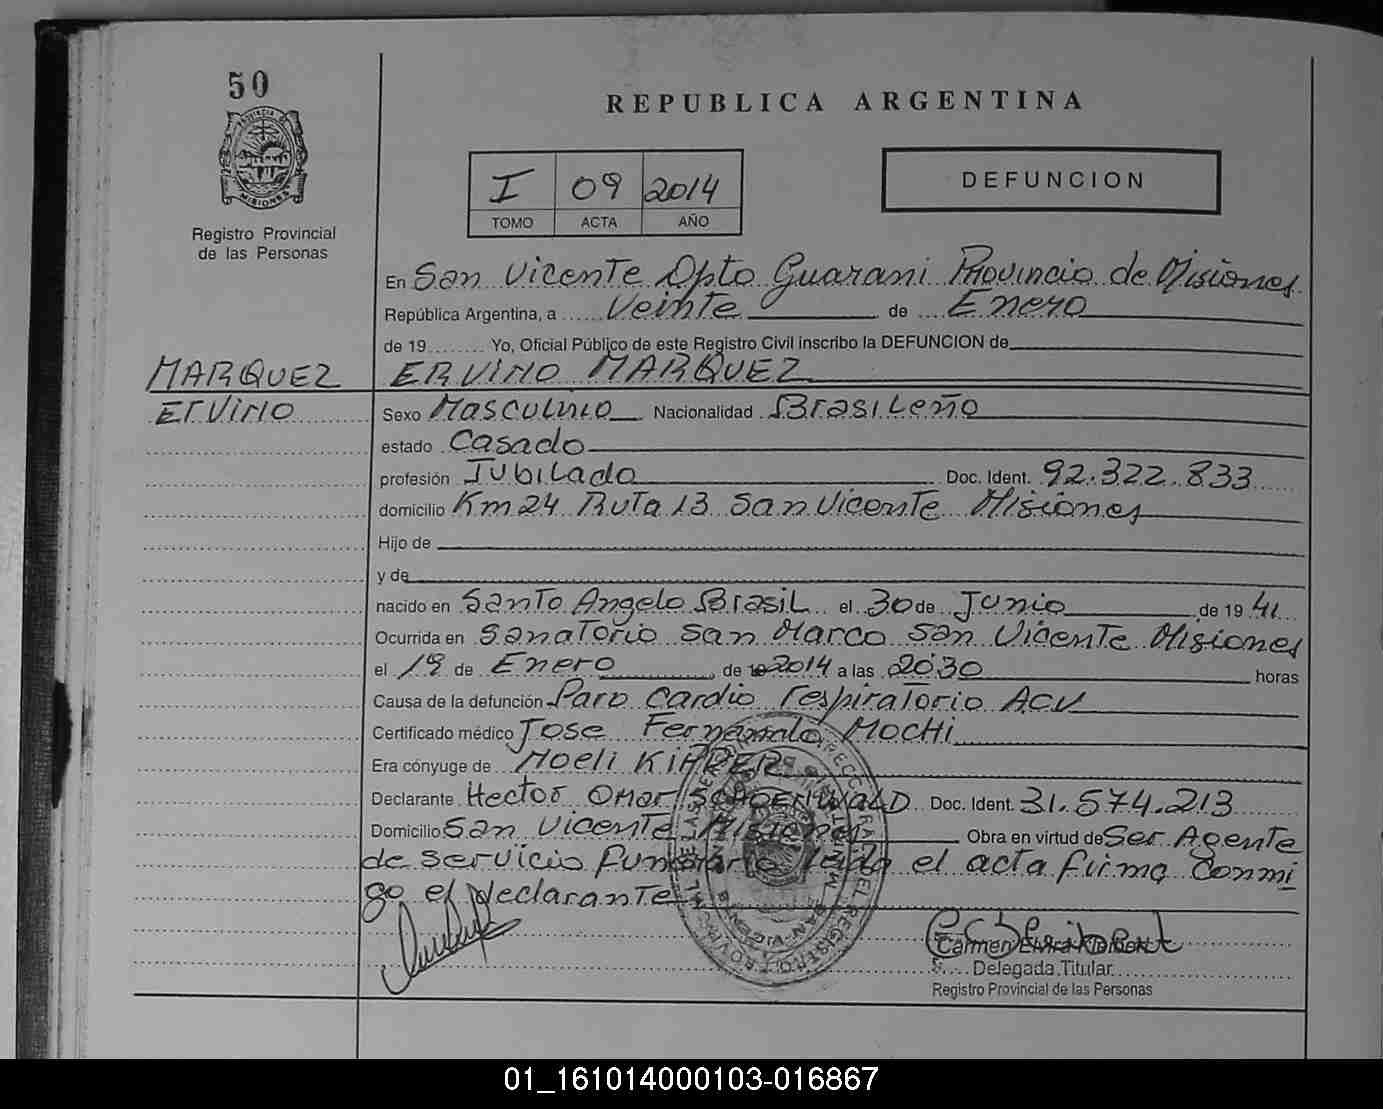 50
PROVINCIA DE
MISIONES
Registro Provincial
de las Personas
REPUBLICA ARGENTINA
I 09 2014
TOMO ACTA AÑO
DEFUNCION
En San Vicente Dpto Guarani Provincia de Misiones
República Argentina, a Veinte de Enero
de 19 Yo, Oficial Público de este Registro Civil inscribo la DEFUNCION de
MARQUEZ ERVINO MARQUEZ
ERVINO Sexo Masculino Nacionalidad Brasileño
estado Casado
profesión Jubilado Doc. Ident. 92.322.833
domicilio Km 24 Ruta 13 San Vicente Misiones
Hijo de
y de
nacido en Santo Angelo Brasil el 30 de Junio de 19 41
Ocurrida en Sanatorio San Marco San Vicente Misiones
el 19 de Enero de 2014 a las 20:30 horas
Causa de la defunción Paro cardio respiratorio ACV
Certificado médico Jose Fernando MOCHI
Era cónyuge de Noeli KIPPER
Declarante Hector Omar SCHOENWALD Doc. Ident. 31.574.213
Domicilio San Vicente Misiones Obra en virtud de Ser Agente
de servicio funerario leida el acta firma Conmi
go el declarante
Carmen Elvira
Delegada Titular
Registro Provincial de las Personas
01_161014000103-016867